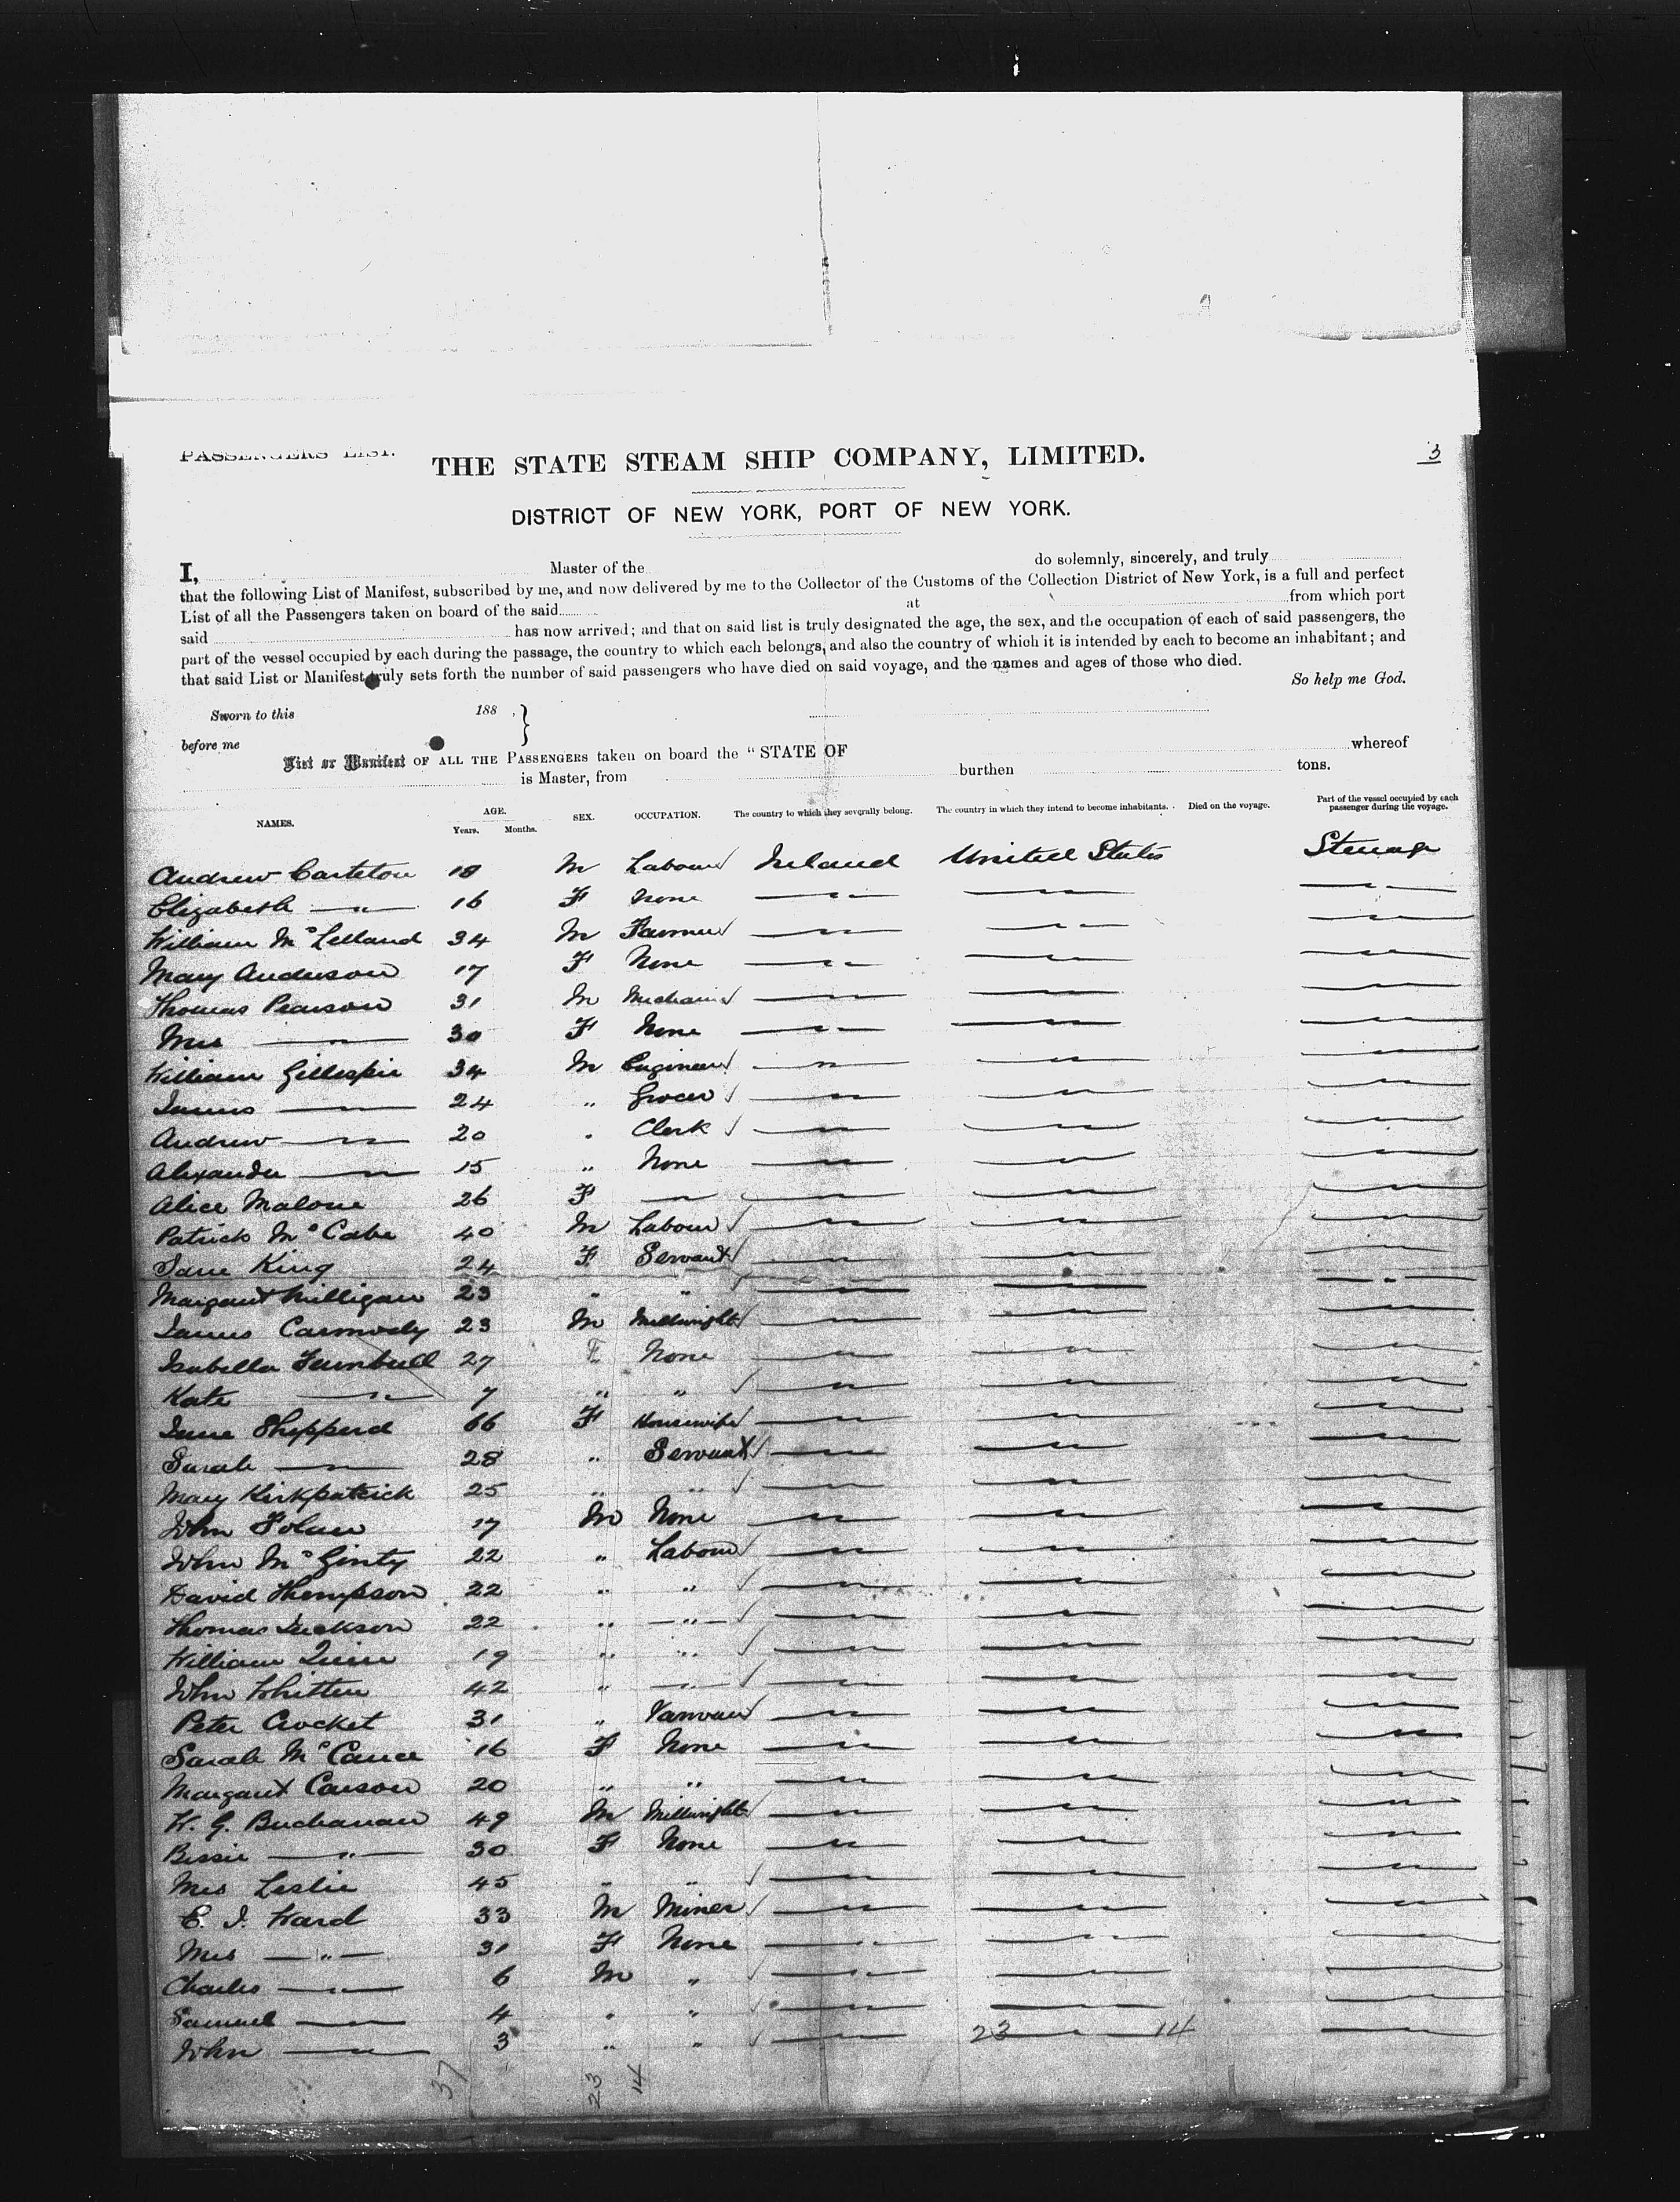 PASSENGERS LIST.
THE STATE STEAM SHIP COMPANY, LIMITED.
3
DISTRICT OF NEW YORK, PORT OF NEW YORK.
I, Master of the do solemnly, sincerely, and truly
that the following List of Manifest, subscribed by me, and now delivered by me to the Collector of the Customs of the Collection District of New York, is a full and perfect
List of all the Passengers taken on board of the said at from which port
said has now arrived; and that on said list is truly designated the age, the sex, and the occupation of each of said passengers, the
part of the vessel occupied by each during the passage, the country to which each belongs, and also the country of which it is intended by each to become an inhabitant; and
that said List or Manifest truly sets forth the number of said passengers who have died on said voyage, and the names and ages of those who died.
So help me God.
Sworn to this 188 , }
before me
List or Manifest OF ALL THE PASSENGERS taken on board the "STATE OF whereof
is Master, from burthen tons.
NAMES. AGE. Years. Months. SEX. OCCUPATION. The country to which they severally belong. The country in which they intend to become inhabitants. Died on the voyage. Part of the vessel occupied by each passenger during the voyage.
Andrew Carleton 18 M Labour Ireland United States Steerage
Elizabeth — " — 16 F None — " — — " — — " —
William McLelland 34 M Farmer — " — — " — — " —
Mary Anderson 17 F None — " — — " — — " —
Thomas Pearson 31 M Mechanic — " — — " — — " —
Mrs — " — 30 F None — " — — " — — " —
William Gillespie 34 M Engineer — " — — " — — " —
James — " — 24 " Grocer — " — — " — — " —
Andrew — " — 20 " Clerk — " — — " — — " —
Alexander — " — 15 " None — " — — " — — " —
Alice Malone 26 F — " — — " — — " — — " —
Patrick McCabe 40 M Labour — " — — " — — " —
Jane King 24 F Servant — " — — " — — " —
Margaret Milligan 23 " " — " — — " — — " —
James Carmody 23 M Millwright — " — — " — — " —
Isabella Turnbull 27 F None — " — — " — — " —
Kate — " — 7 " " — " — — " — — " —
Jane Shepperd 66 F Housewife — " — — " — — " —
Sarah — " — 28 " Servant — " — — " — — " —
Mary Kirkpatrick 25 " " — " — — " — — " —
John Folan 17 M None — " — — " — — " —
John McGinty 22 " Labour — " — — " — — " —
David Thempson 22 " " — " — — " — — " —
Thomas Jackson 22 " — " — — " — — " — — " —
William Quin 19 " " — " — — " — — " —
John Whitten 42 " — " — — " — — " — — " —
Peter Crocket 31 " — " — — " — — " —
Sarah McCance 16 F None — " — — " — — " —
Margaret Carson 20 " " — " — — " — — " —
W. G. Buchanan 49 M Millwright — " — — " — — " —
Bessie — " — 30 F None — " — — " — — " —
Mrs Leslie 45 " " — " — — " — — " —
C. J. Ward 33 M Miner — " — — " — — " —
Mrs — " — 31 F None — " — — " — — " —
Charles — " — 6 M " — " — — " — — " —
Samuel — " — 4 " " — " — — " — — " —
John — " — 3 " " — " — 23 — " — 14 — " —
37 23 14